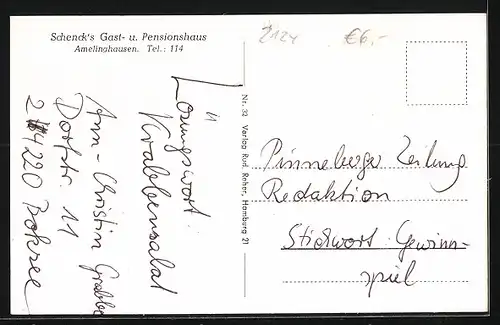 Schenck's Gast- u. Pensionshaus
Amelinghausen. Tel.: 114
2124
€6,-
Losungswort:
in
Krabbensalat
Ann-Christin Grabbe
Dorfstr. 11
24220 Boksee
Nr. 32 Verlag Rud. Reher, Hamburg 21
Pinneberger Zeitung
Redaktion
Stichwort: Gewinn-
spiel